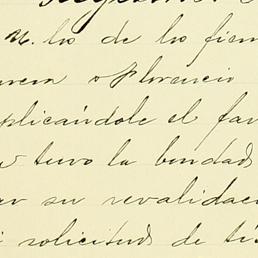 M. los de los firm
Florencio
plicándole el fav
tuvo la bondad
su revalidac
solicitud de tí